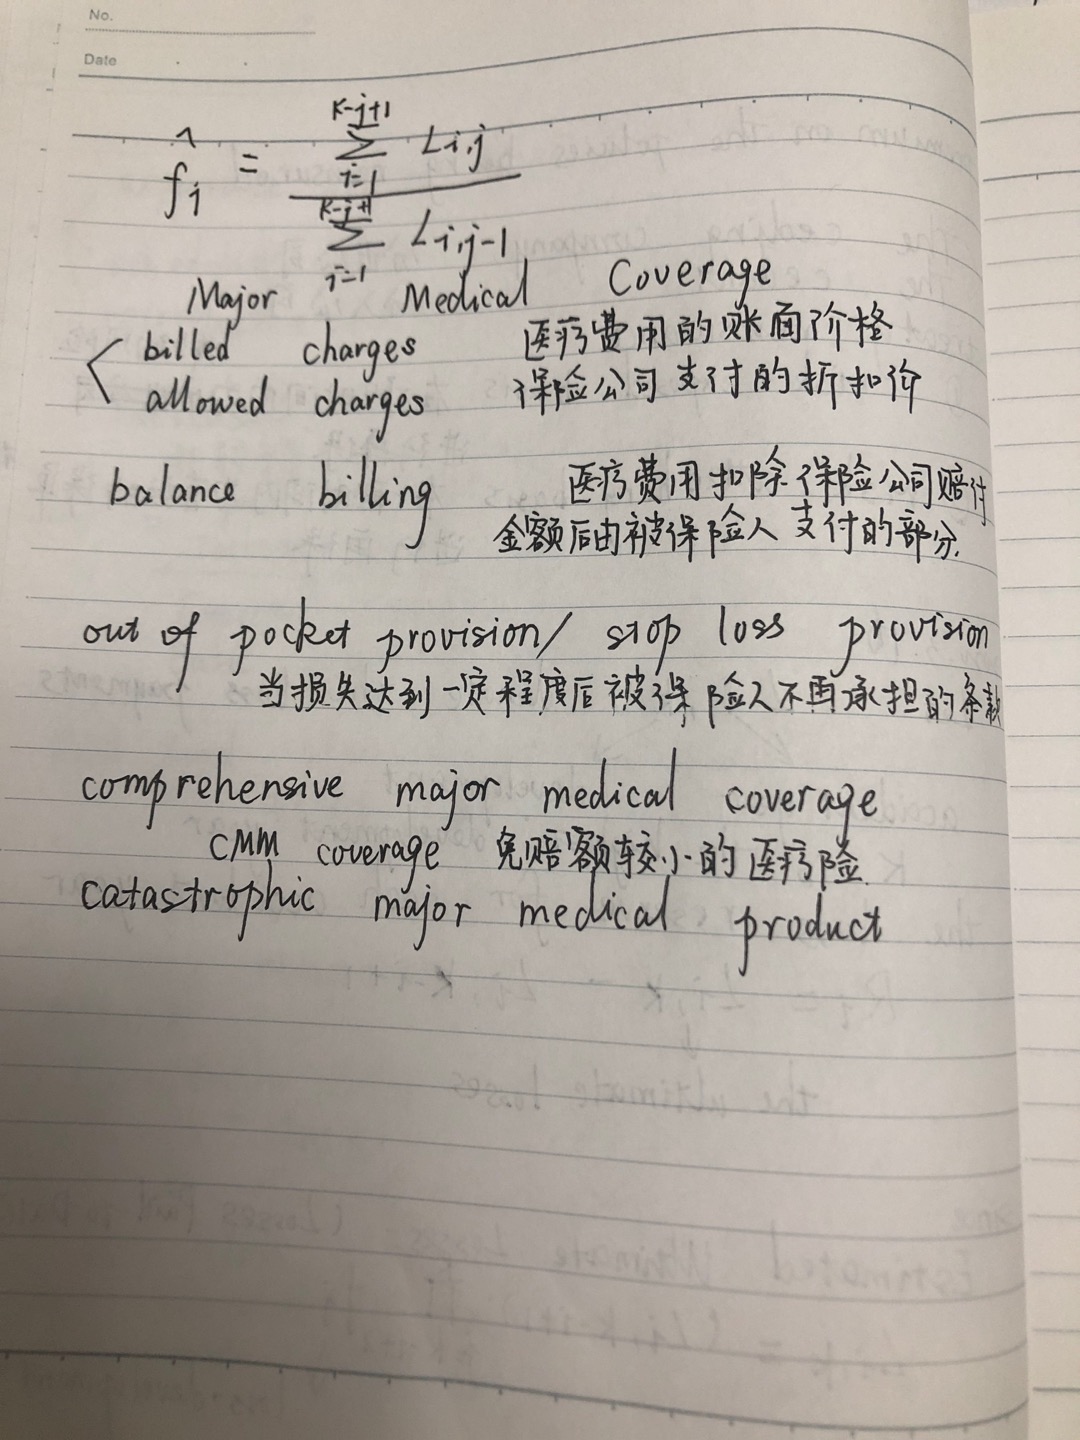 No.
Date
f̂_j = \frac{\sum_{i=1}^{K-j+1} L_{i,j}}{\sum_{i=1}^{K-j+1} L_{i,j-1}}
Major Medical Coverage
billed charges 医疗费用的账面价格
allowed charges 保险公司支付的折扣价
balance billing 医疗费用扣除保险公司赔付
金额后由被保险人支付的部分.
out of pocket provision/ stop loss provision
当损失达到一定程度后被保险人不再承担的条款
comprehensive major medical coverage
CMM coverage 免赔额较小的医疗险.
catastrophic major medical product
the ultimate losses